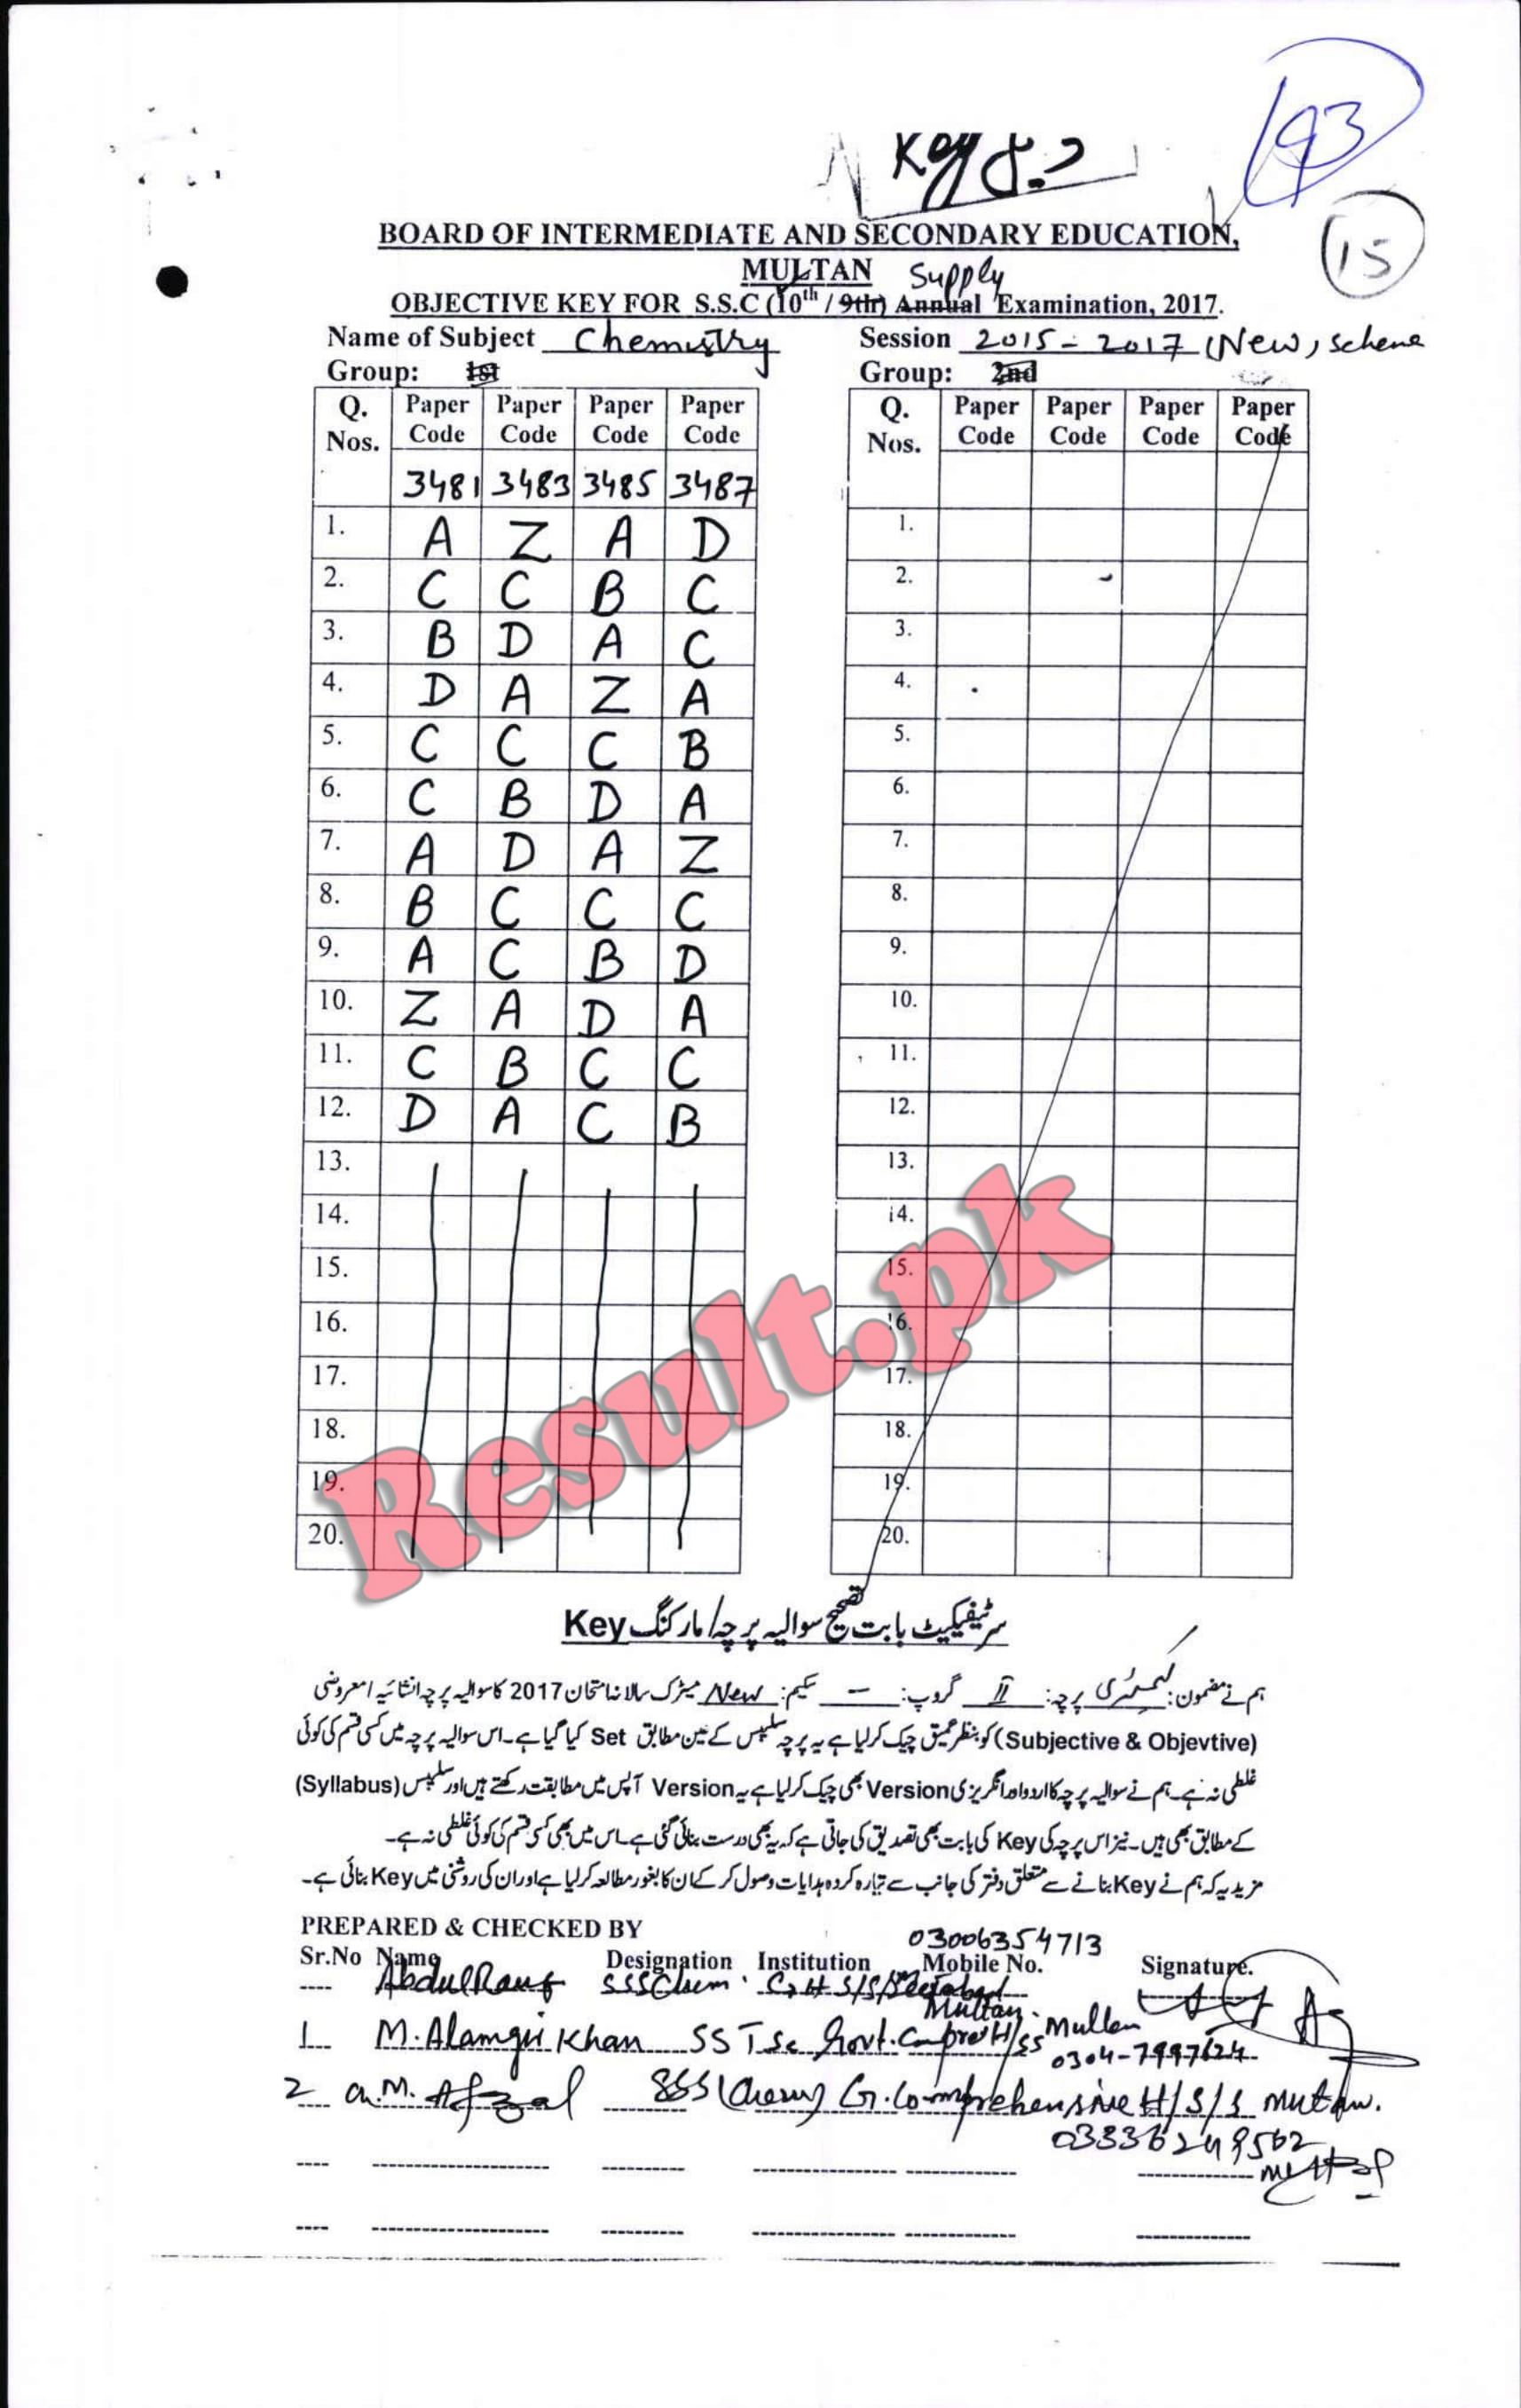 Key
193
15
BOARD OF INTERMEDIATE AND SECONDARY EDUCATION,
MULTAN Supply
OBJECTIVE KEY FOR S.S.C (10th / 9th) Annual Examination, 2017.
Name of Subject Chemistry Session 2015 - 2017 (New) scheme
Group: 1st Group: 2nd
Q. Nos. Paper Code Paper Code Paper Code Paper Code
3481 3483 3485 3487
1. A Z A D
2. C C B C
3. B D A C
4. D A Z A
5. C C C B
6. C B D A
7. A D A Z
8. B C C C
9. A C B D
10. Z A D A
11. C B C C
12. D A C B
13.
14.
15.
16.
17.
18.
19.
20.
Q. Nos. Paper Code Paper Code Paper Code Paper Code
1.
2.
3.
4.
5.
6.
7.
8.
9.
10.
11.
12.
13.
14.
15.
16.
17.
18.
19.
20.
Result.pk
سرٹیفکیٹ بابت تصحیح سوالیہ پرچہ/مارکنگ Key
ہم نے مضمون: کیمسٹری پرچہ: II گروپ: – سکیم: New میٹرک سالانہ امتحان 2017 کا سوالیہ پرچہ انشائیہ / معروضی
(Subjective & Objevtive) کو بنظر عمیق چیک کرلیا ہے یہ پرچہ سلیبس کے عین مطابق Set کیا گیا ہے۔ اس سوالیہ پرچہ میں کسی قسم کی کوئی
غلطی نہ ہے۔ ہم نے سوالیہ پرچہ کا اردو اور انگریزی Version بھی چیک کرلیا ہے یہ Version آپس میں مطابقت رکھتے ہیں اور سلیبس (Syllabus)
کے مطابق بھی ہیں۔ نیز اس پرچہ کی Key کی بابت بھی تصدیق کی جاتی ہے کہ یہ بھی درست بنائی گئی ہے۔ اس میں بھی کسی قسم کی کوئی غلطی نہ ہے۔
مزید یہ کہ ہم نے Key بنانے سے متعلق دفتر کی جانب سے تیار کردہ ہدایات وصول کر کے ان کا بغور مطالعہ کرلیا ہے اور ان کی روشنی میں Key بنائی ہے۔
PREPARED & CHECKED BY
03006354713
Sr.No Name Designation Institution Mobile No. Signature.
Abdul Rauf SSS Chem. Multan
1 M. Alamgir Khan SST Sc Govt. H/SS Multan
0304-7997624
2 M. Afzal SSS (Chem) G. Comprehensive H/S/S Multan.
03336249562